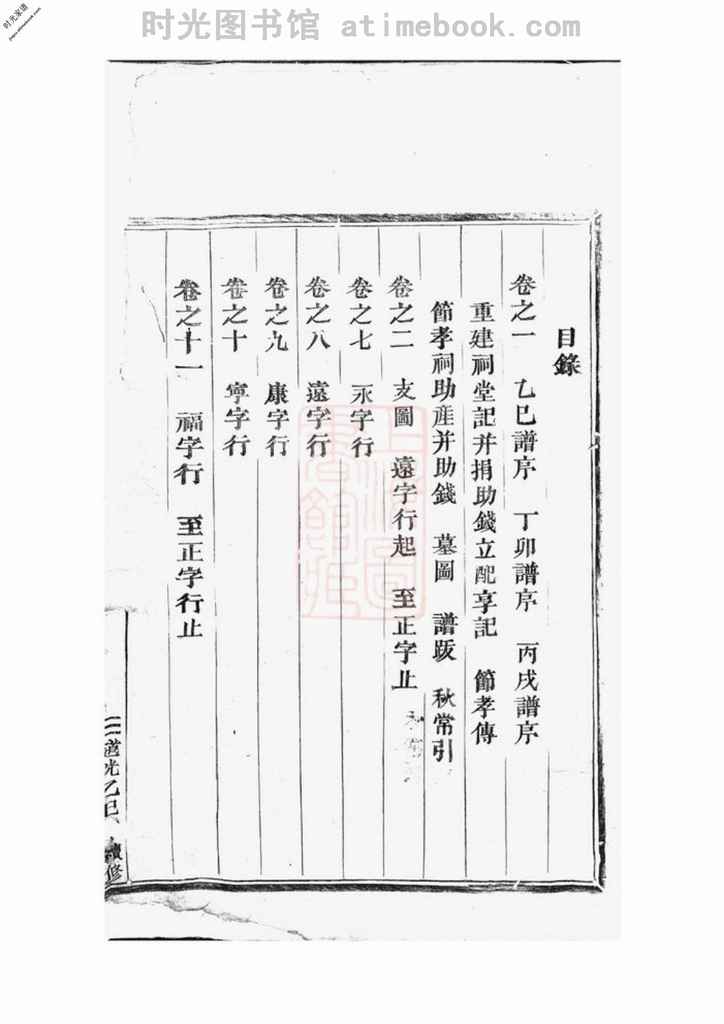 时光图书馆 atimebook.com
时光家谱
jiapu.atimebook.com
目錄
卷之一 乙巳譜序 丁卯譜序 丙戌譜序
重建祠堂記并捐助錢立配享記 節孝傳
節孝祠助產并助錢 墓圖 譜跋 秋常引
卷之二 支圖 遠字行起 至正字止
卷之七 永字行
卷之八 遠字行
卷之九 康字行
卷之十 寧字行
卷之十一 福字行 至正字行止
道光乙巳 續修
上海圖書館藏